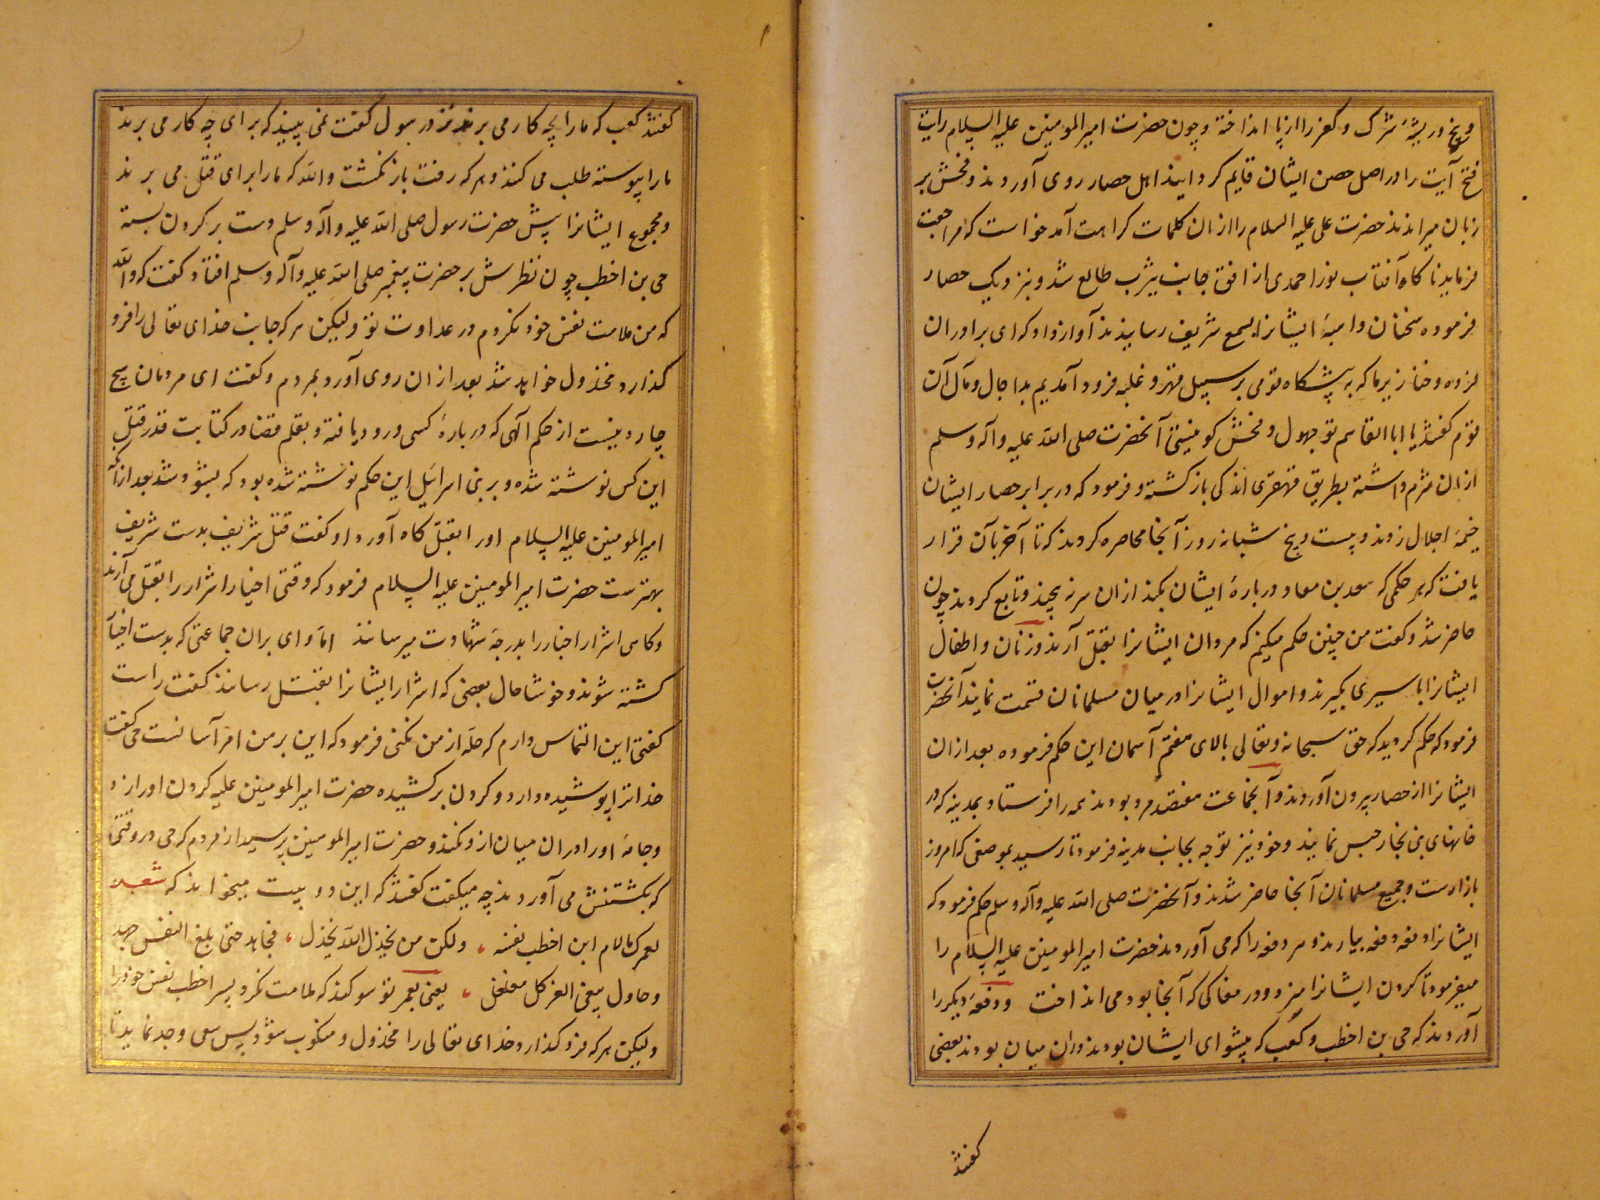 و بیخ و ریشهٔ شرک و کفر را از پا انداخته و چون حضرت امیر المومنین علیه السلام رایت
فتح آیت را در اصل حصن ایشان قایم کردانید اهل حصار روی آوردند و فحش بر
زبان میراندند حضرت علی علیه السلام را از ان کلمات کراهت آمد خواست که مراجعت
فرماید ناکاه آفتاب نور احمدی از افق جانب یثرب طالع شد و بنزدیک حصار
فرموده سخنان واهیهٔ ایشانرا بسمع شریف رسانیدند آواز داد که ای برادران
قرده و خنازیر ما که به پیشکاه قومی بر سبیل قهر و غلبه فرود آمدیم بدا حال و مآل آن
قوم کفتند یا ابا القاسم تو جهول و فحش کو نیستی آنحضرت صلی الله علیه و آله وسلم
از ان شرم داشته بطریق قهقری اندکی باز کشته و فرمود که در برابر حصار ایشان
خیمهٔ اجلال زدند و بیست و پنج شبانه روز آنجا محاصره کردند که تا آخر بآن قرار
یافت که هر حکمی که سعد بن معاد در بارهٔ ایشان بکند از ان سر نه پیچند و تابع کردند چون
حاضر شد و کفت من چنین حکم میکنم که مردان ایشانرا بقتل آرند و زنان و اطفال
ایشانرا باسیری بکیرند و اموال ایشانرا در میان مسلمانان قسمت نمایند آنحضرت
فرمود که حکم کردید که حق سبحانه و تعالی بالای هفتم آسمان این حکم فرموده بعد از ان
ایشانرا از حصار بیرون آوردند و آنجماعت هفتصد مرد بودند همه را فرستاد بمدینه که در
خانهای بنی نجار حبس نمایند و خود نیز توجه بجانب مدینه فرمود تا رسید بموضعی که امروز
بازارست و جمیع مسلمانان آنجا حاضر شدند و آنحضرت صلی الله علیه و آله وسلم حکم فرمود که
ایشانرا دفعه دفعه بیارند و هر دفعه را که می آوردند حضرت امیر المومنین علیه السلام را
میفرمود تا کردن ایشانرا میزد و در مغاکی که آنجا بود می انداخت و دفعهٔ دیکر را
آوردند که حی بن اخطب و کعب که پیشوای ایشان بودند در ان میان بودند بعضی
کفتند
کفتند کعب که ما را بچه کار می برند نزد رسول کفت نمی بینید که برای چه کار می برند
ما را پیوسته طلب می کنند و هر که رفت باز نکشت والله که ما را برای قتل می برند
و مجموع ایشانرا پیش حضرت رسول صلی الله علیه و آله وسلم دست بر کردن بسته
حی بن اخطب چون نظرش بر حضرت پیغمبر صلی الله علیه و آله وسلم افتاد کفت که والله
که من ملامت نفس خود نکردم در عداوت تو ولیکن هر که جانب خدای تعالی را فرو
کذارد مخذول خواهد شد بعد از ان روی آورد بمردم و کفت ای مردمان هیچ
چاره نیست از حکم آلهی که در بارهٔ کسی ورود یافته و بقلم قضا در کتابت قدر قتل
این کس نوشته شده و بر بنی اسرایل این حکم نوشته شده بود که بشود شد بعد از ان
امیر المومنین علیه السلام او را بقتل کاه آورد او کفت قتل شریف بدست شریف
بهترست حضرت امیر المومنین علیه السلام فرمود که وقتی اخیار اشرار را بقتل می آرند
و کاهی اشرار اخیار را بدرجهٔ شهادت میرسانند اما وای بران جماعتی که بدست اخیار
کشته شوند و خوشا حال بعضی که اشرار ایشانرا بقتل رسانند کفت راست
کفتی این التماس دارم که حله از من نکنی فرمود که این بر من امر آسانست حی کفت
خدا ترا پوشیده دارد و کردن بر کشیده حضرت امیر المومنین علیه کردن او را زد
و جامهٔ او را در ان میان از و نکند و حضرت امیر المومنین پرسید از مردم که حی در وقتی
که بکشتنش می آوردند چه میکفت کفتند که این دو بیت میخواند که شعر
لعمرک مالام ابن اخطب نفسه ، ولکن من یخذل الله یخذل ، فجاهد حتی بلغ النفس جهد
وحاول یبغی العز کل مغلغل ، یعنی بعمر تو سوکند که ملامت نکرد پسر اخطب نفس خود را
ولیکن هر که فرو کذارد خدای تعالی را مخذول و منکوب شود پس سعی و جد نماید تا